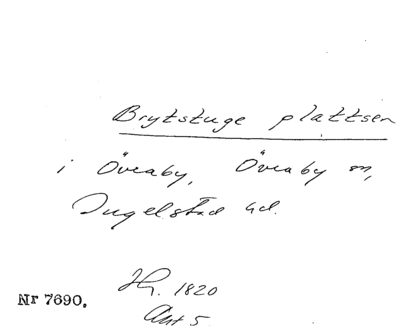 Brytstuge plattsen
i Övraby, Övraby sn,
Ingelstad hd.
Hr. 1820
Nr 7690.
Ant 5